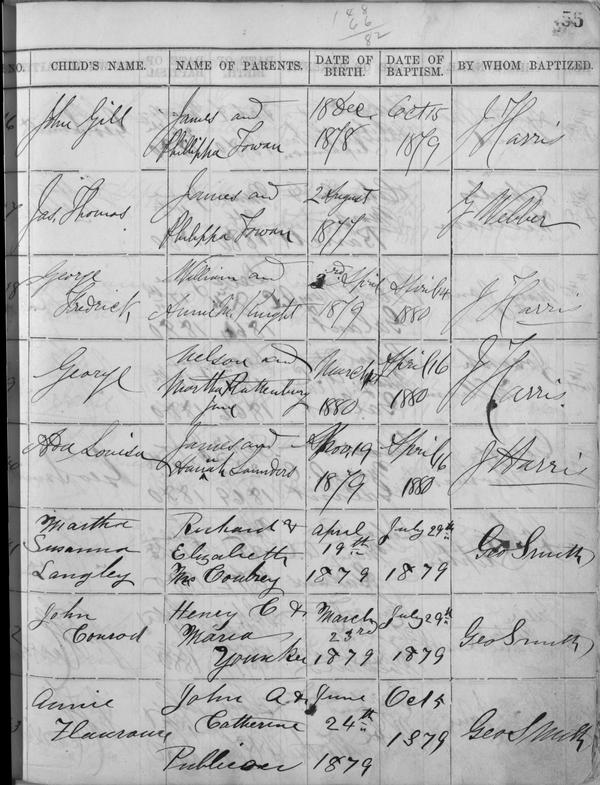 188
68
82
55
NO. CHILD'S NAME. NAME OF PARENTS. DATE OF BIRTH. DATE OF BAPTISM. BY WHOM BAPTIZED.
6 John Gill James and 18 Dec. Oct 15 J Harris
Phillippa Towan 1878 1879
7 Jas. Thomas James and 2 August J Webber
Philippa Towan 1877
18 George William and 3rd April April 14 J Harris
Fredrick Knight 1879 1880
9 George Nelson and March April 16 J Harris.
Martha Rattenbury 1880 1880
June
Ada Louisa James and Nov 19 April 16 J Harris
Hannah Saunders 1879 1880
Martha Richard & April July 29th Geo Smith
Susanna Elizabeth 19th
Langley Mc Coubrey 1879 1879
2 John Henry C & March July 29th Geo Smith
Conrod Maria 23rd
Younker 1879 1879
3 Annie John A & June Oct 5 Geo Smith
Catherine 24th 1879
Publicover 1879